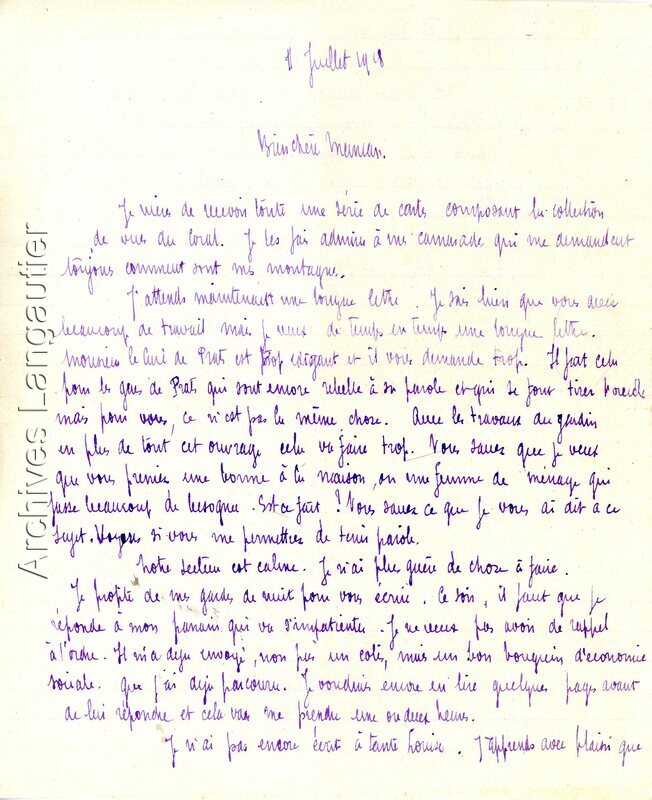 Juillet 1918
Bien chère Maman.
Je viens de recevoir toute une série de cartes composant la collection
de vues du Coral. Je les fais admirer à mes camarade qui me demandent
toujours comment sont mes montagnes.
J'attends maintenant une longue lettre. Je sais bien que vous avez
beaucoup de travail mais je veux de temps en temps une longue lettre.
Monsieur le Curé de Prats est trop exigant et il vous demande trop. Il fait cela
pour les gens de Prats qui sont encore rebelle à sa parole et qui se font tirer l'oreille
mais pour vous, ce n'est pas la même chose. Avec les travaux du jardin
en plus de tout cet ouvrage cela va faire trop. Vous savez que je veux
que vous preniez une bonne à la maison, ou une femme de ménage qui
fasse beaucoup de besogne. Est ce fait ? Vous savez ce que je vous ai dit à ce
sujet. Voyons si vous me permettrez de tenir parole.
Notre secteur est calme. Je n'ai plus guère de chose à faire.
Je profite de mes gardes de nuit pour vous écrire. Ce soir, il faut que je
réponde à mon parrain qui va s'impatienter. Je ne veux pas avoir de rappel
à l'ordre. Il m'a deja envoyé, non pas un colis, mais un bon bouquin d'economie
sociale. que j'ai deja parcouru. Je voudrais encore en lire quelques pages avant
de lui répondre et cela va me prendre une ou deux heures.
Je n'ai pas encore écrit à tante Louise. J'apprends avec plaisir que
Archives Langautier